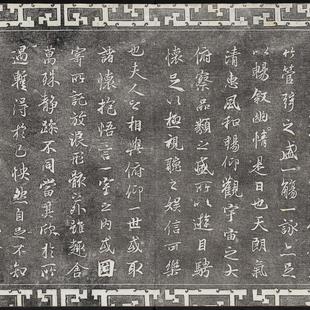 竹管弦之盛一觴一詠亦足
以暢叙幽情是日也天朗氣
清惠風和暢仰觀宇宙之大
俯察品類之盛所以遊目騁
懷足以極視聽之娛信可樂
也夫人之相與俯仰一世或取
諸懷抱悟言一室之内或因
寄所託放浪形骸之外雖趣舍
萬殊静躁不同當其欣於所
遇暫得於己怏然自足不知